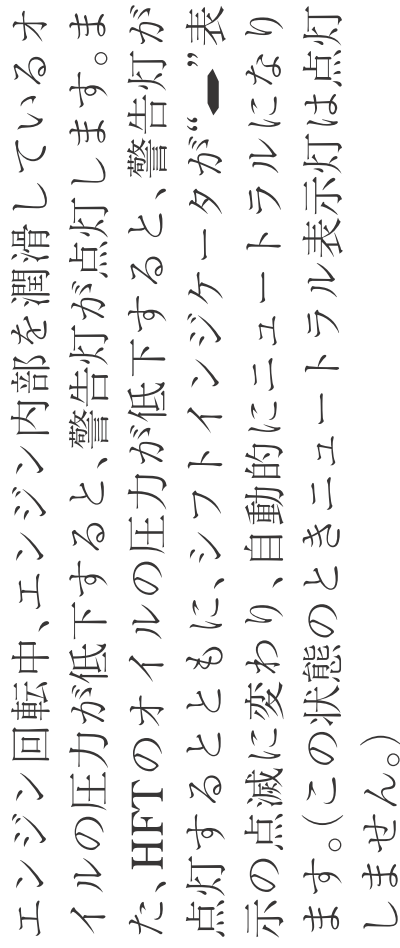 エンジン回転中、エンジン内部を潤滑しているオ
イルの圧力が低下すると、警告灯が点灯します。ま
た、HFTのオイルの圧力が低下すると、警告灯が
点灯するとともに、シフトインジケータが“-”表
示の点滅に変わり、自動的にニュートラルになり
ます。(この状態のときニュートラル表示灯は点灯
しません。)